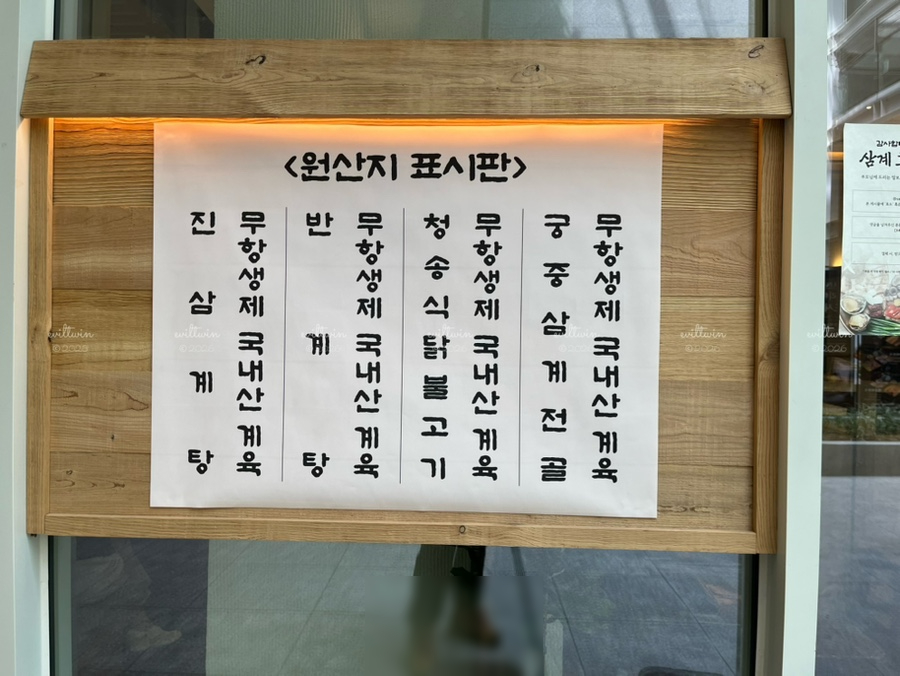 <원산지 표시판>
진삼계탕
무항생제 국내산 계육
반계탕
무항생제 국내산 계육
청송식닭불고기
무항생제 국내산 계육
궁중삼계전골
무항생제 국내산 계육
삼계
eviltwin
©2026
eviltwin
©2026
eviltwin
©2026
eviltwin
©2026
eviltwin
©2026
eviltwin
©2026
eviltwin
©2026